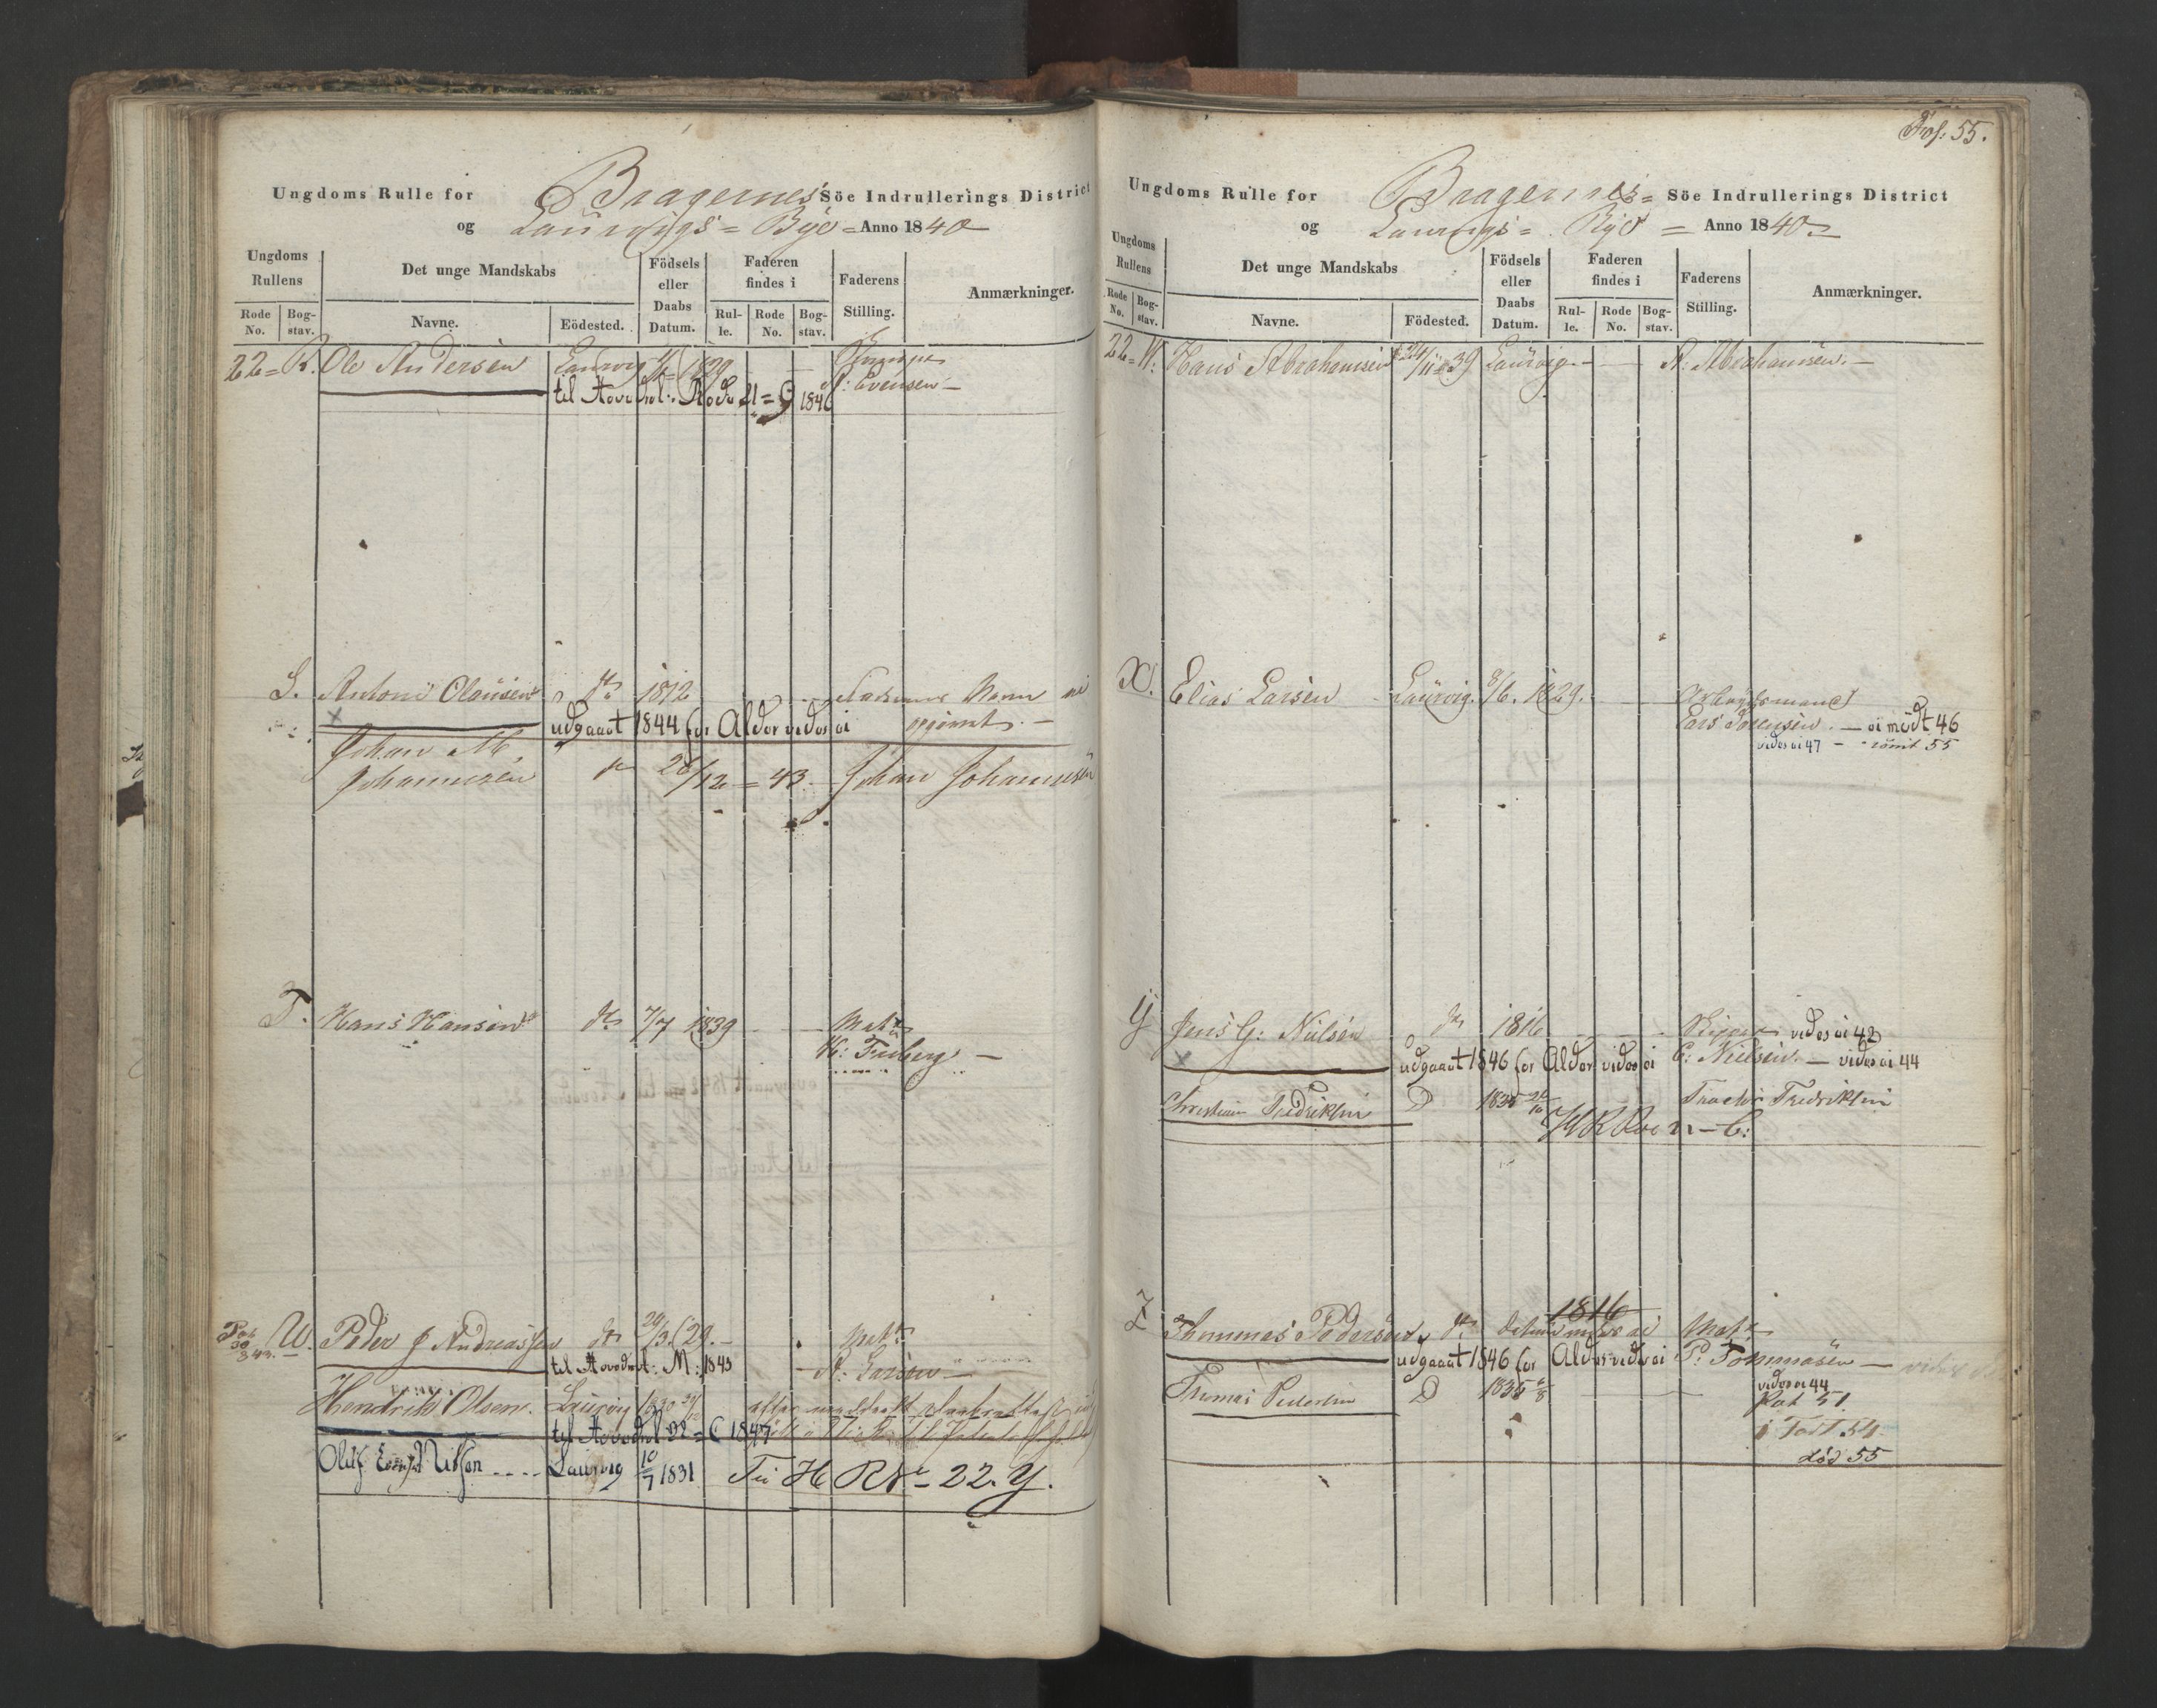 Ungdoms Rulle for Bragernes Söe Indrullerings District
og Laurvigs = Bye = Anno 1840
Ungdoms Rullens
Det unge Mandskabs
Födsels eller Daabs Datum.
Faderen findes i
Faderens Stilling.
Anmærkninger.
Rode No.
Bog-stav.
Navne.
Eödested.
Rul-le.
Rode No.
Bog-stav.
22 = R. Ole Andersen Laurvig 1829
A: Evensen —
til Hovedrol: Rode 21 = 1846
S. Antoni Olausen dto 1812 Faderens Navn ei
udgaaet 1844 for Alder vides ei opgivet. —
Johan M.
Johannesen dto 28/12 = 43. Johan Johannesen
T. Hans Hansen dto 7/7 1839 Matr.
H: Friberg —
U. Peder J Andreassen dto 29/3 29. — Matr.
til Hovedrol: M: 1843 A: Larsen —
Hendrik Olsen. Laurvig 1830
til Hovedrol 22 = C 1847
Oluf Nilsen Laurvig 10/7 1831 Til H R No 22. Y.
Fol: 55.
Ungdoms Rulle for Bragernes = Söe Indrullerings District
og Laurvigs = Bye = Anno 1840
Ungdoms Rullens
Det unge Mandskabs
Födsels eller Daabs Datum.
Faderen findes i
Faderens Stilling.
Anmærkninger.
Rode No.
Bog-stav.
Navne.
Födested.
Rul-le.
Rode No.
Bog-stav.
22 = W: Hans Abrahamsen 24/11 39 Laurvig. — A: Abrahamsen. —
X. Elias Larsen Laurvig. 8/6. 1829. Arbeidsmand
Lars Sörensen. — ei mödt 46
vides ei 47 — römt 55
Y Jens G: Nielsen dto 1816 Skipper vides ei 42
udgaaet 1846 for Alder vides ei C: Nielsen. — vides ei 44
Christian Fredriksen D 1835 Fredriksen
H R Rode 22 — C:
Z Thommes Pedersen dto 1816 Matr
udgaaet 1846 for Alder vides ei P: Tommasen —
vides ei 44
Thomas Pedersen D 1835 6/8 Pat 51
i Fart 54
död 55